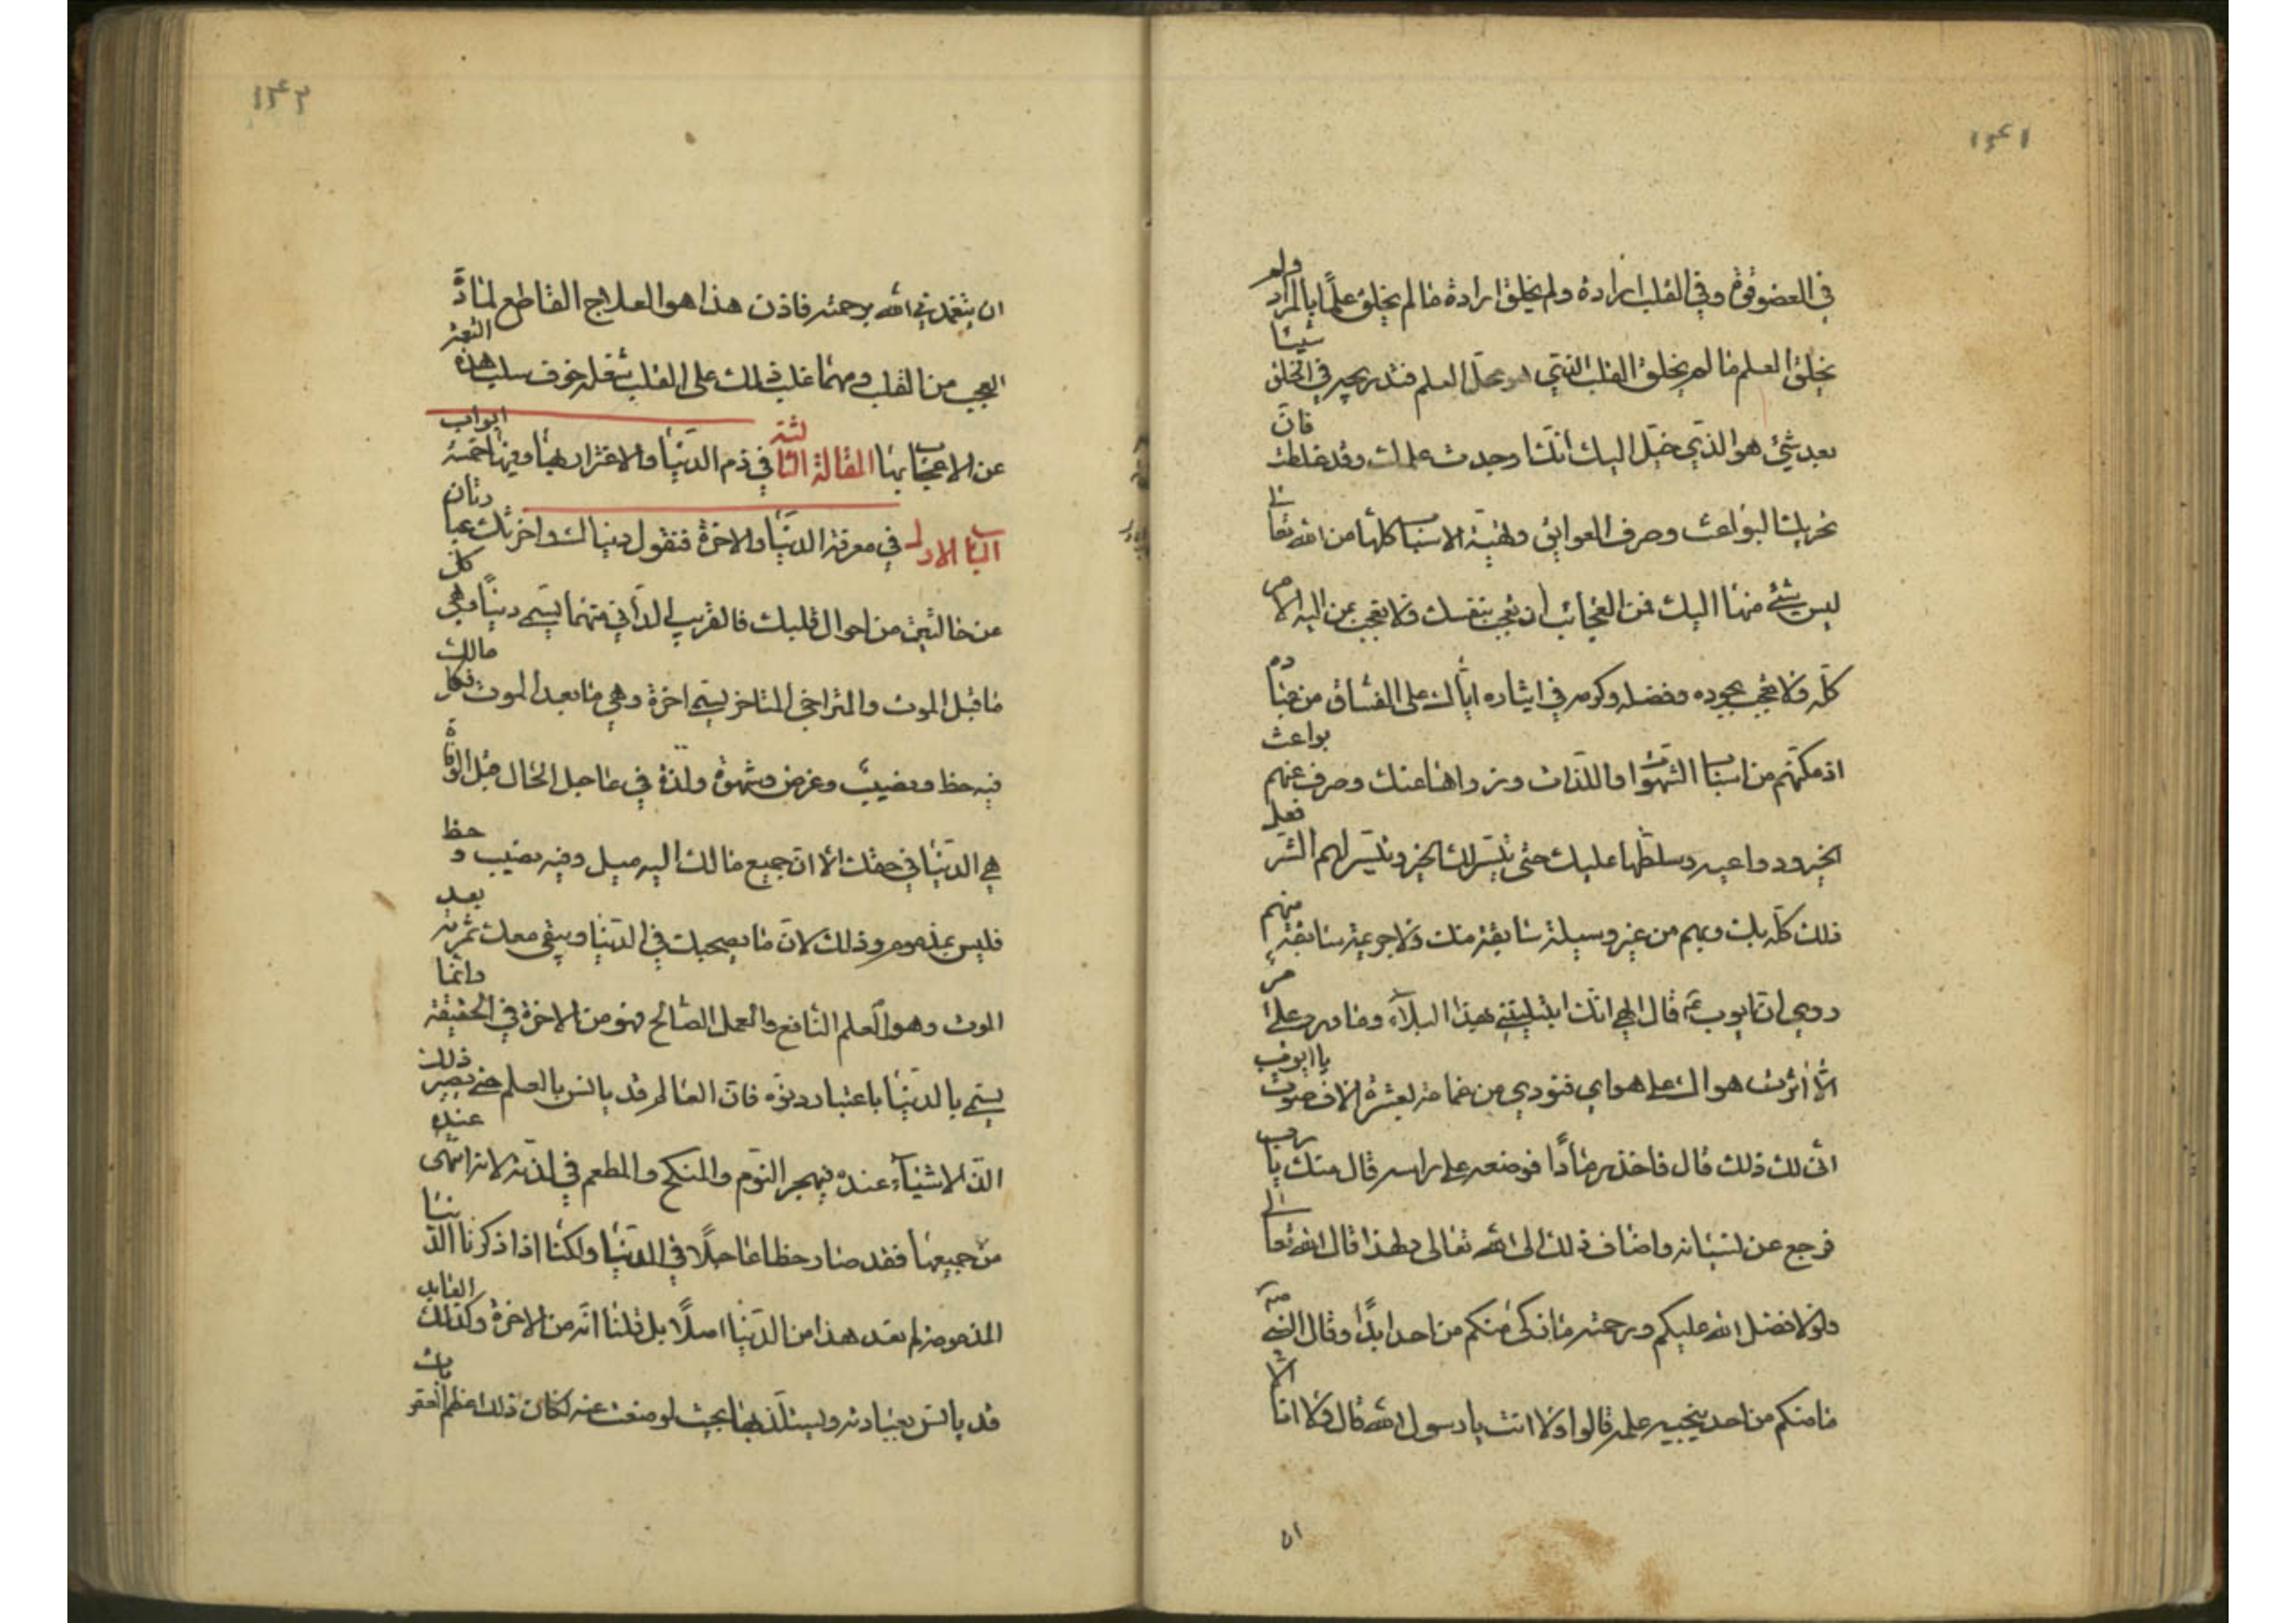 ١٤١
في العضو قوة وفي القلب ارادة ولم يخلق ارادة ما لم يخلق علما بالمراد ولم
يخلق العلم ما لم يخلق القلب الذي هو محل العلم فتدريجه في الخلق شيئا
بعد شيئ هو الذي خيل اليك انك اوجدت عملك وقد غلطت فان
تحريك البواعث وصرف العوائق وتهيئة الاسباب كلها من الله تعالى
ليس شيئ منها اليك فمن العجائب ان تعجب بنفسك ولا تعجب بمن اليه الامر
كله ولا تعجب بجوده وفضله وكرمه في ايثاره اياك على الفساق من عباده
اذ مكنهم من اسباب الشهوات واللذات وزواها عنك وصرف عنهم بواعث
الخير ودواعيه وسلطها عليك حتى تيسر لك الخير وتيسر لهم الشر فعل
ذلك كله بك وبهم من غير وسيلة سابقة منك ولا جريمة سابقة منهم
روي ان ايوب ع قال الهي انك ابتليتني بهذا البلاء وما ورد علي امر
الا اثرت هواك على هواي فنودي من غمامة بعشرة الاف صوت يا ايوب
انى لك ذلك قال فاخذ رمادا فوضعه على راسه قال منك يا رب
فرجع عن نسيانه واضاف ذلك الى الله تعالى ولهذا قال الله تعالى
ولولا فضل الله عليكم ورحمته ما زكى منكم من احد ابدا وقال النبي ص
ما منكم من احد ينجيه عمله قالوا ولا انت يا رسول الله قال ولا انا الا
ان
١٤٢
ان يتغمدني الله برحمته فاذن هذا هو العلاج القاطع لمادة
العجب من القلب ومهما غلب ذلك على القلب شغله خوف سلب هذه النعمة
عن الاعجاب بها المقالة الثالثة في ذم الدنيا والاغترار بها وفيها خمسة ابواب
الباب الاول في معرفة الدنيا والاخرة فنقول دنياك واخرتك عبارتان
عن حالتين من احوال قلبك فالقريب الداني منهما يسمى دنيا وهي كل
ما قبل الموت والمتراخي المتاخر يسمى اخرة وهي ما بعد الموت فكل مالك
فيه حظ ونصيب وغرض وشهوة ولذة في عاجل الحال قبل الوفاة
هي الدنيا في حقك الا ان جميع ما لك اليه ميل وفيه نصيب وحظ
فليس بمذموم وذلك لان ما يصحبك في الدنيا ويبقى معك ثمرته بعد
الموت وهو العلم النافع والعمل الصالح فهو من الاخرة في الحقيقة وانما
يسمى بالدنيا باعتبار دنوه فان العالم قد يانس بالعلم حتى يصير ذلك
الذ الاشياء عنده فيهجر النوم والمنكح والمطعم في لذته لانه اشهى عنده
من جميعها فقد صار حظا عاجلا في الدنيا ولكنا اذا ذكرنا الدنيا
المذمومة لم نعد هذا من الدنيا اصلا بل قلنا انه من الاخرة وكذلك العابد
قد يانس بعبادته ويستلذ بها بحيث لو منعت عنه لكان ذلك اعظم العقوبات